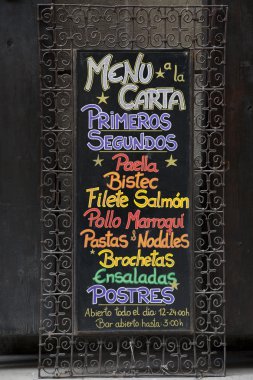 MENU a la
CARTA
PRIMEROS
SEGUNDOS
Paella
Bistec
Filete Salmón
Pollo Marroqui
Pastas & Noddles
Brochetas
Ensaladas
POSTRES
Abierto todo el dia · 12-24:00h
Bar abierto hasta · 3:00h